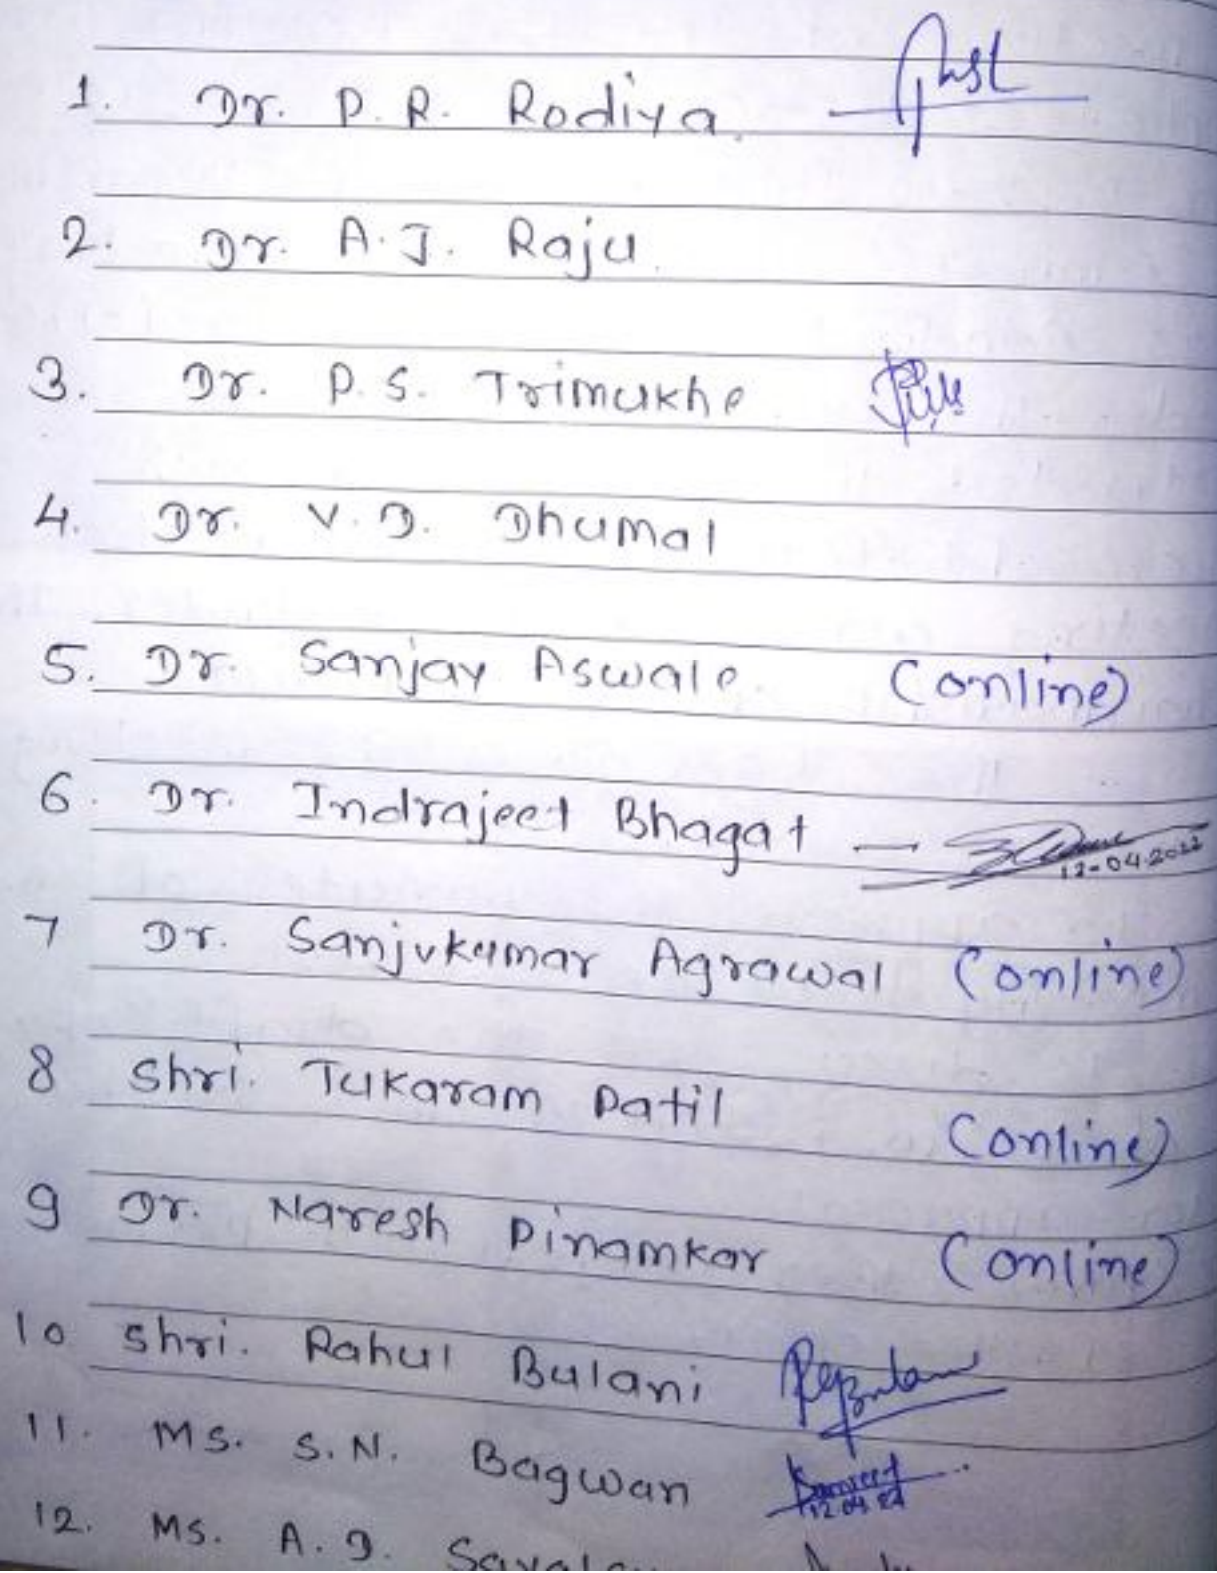 1. Dr. P. R. Rodiya
2. Dr. A. J. Raju
3. Dr. P. S. Trimukhe
4. Dr. V. D. Dhumal
5. Dr. Sanjay Aswale (online)
6. Dr. Indrajeet Bhagat - 12-04-2022
7 Dr. Sanjvkumar Agrawal (online)
8 Shri. Tukaram Patil (online)
9 Dr. Naresh Pinamkar (online)
10 Shri. Rahul Bulani
11. Ms. S. N. Bagwan
12. Ms. A. D.